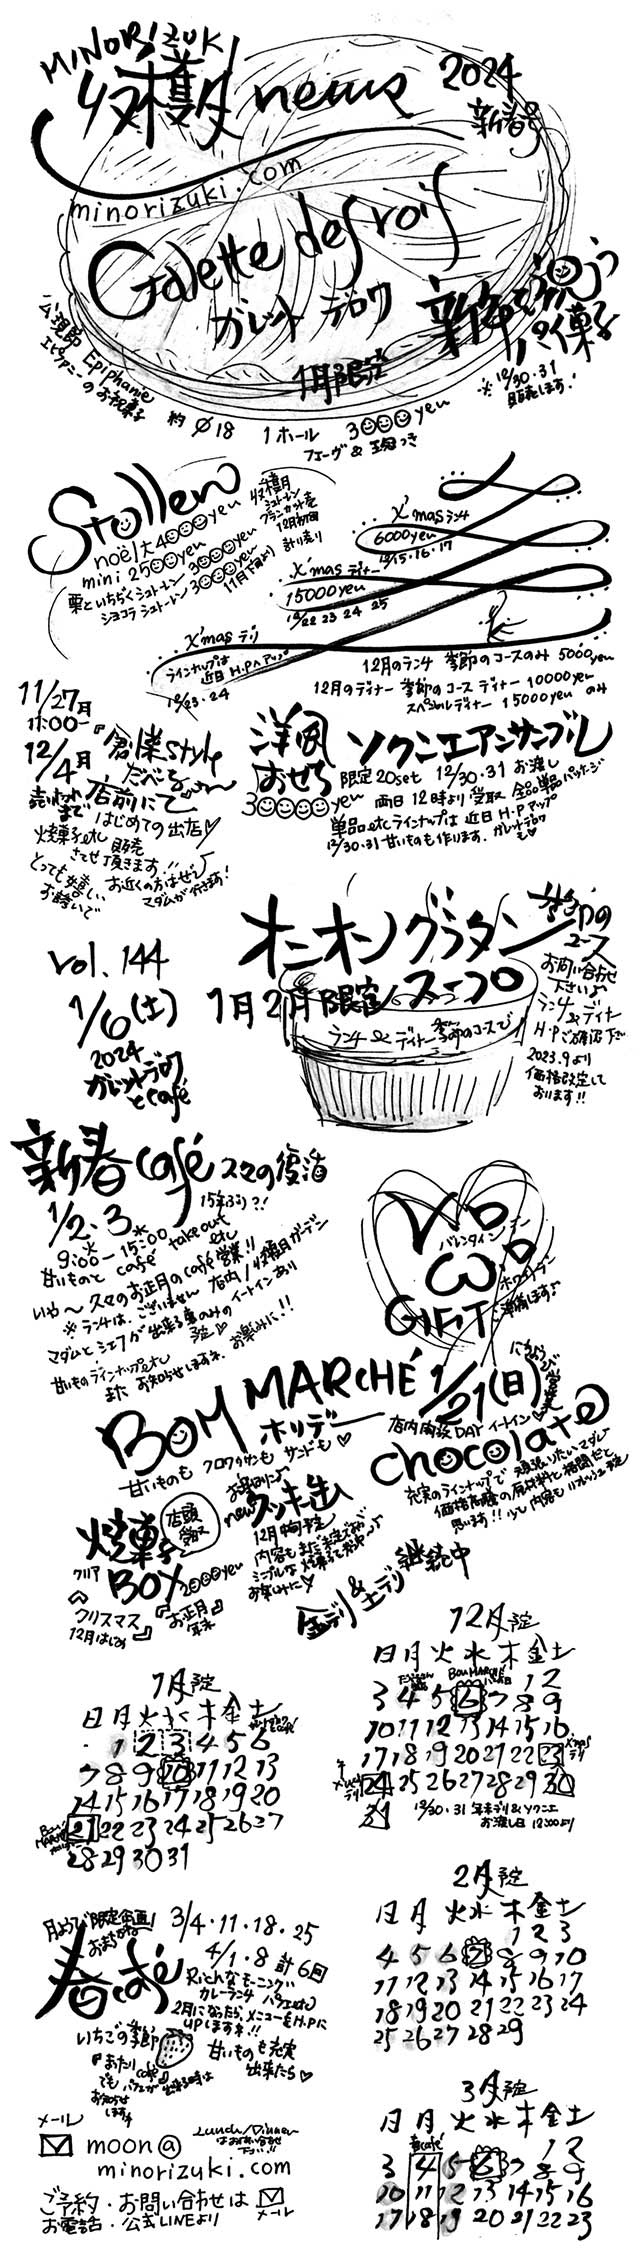 MINORIZUKI
収穫月 news
2024
新春号
minorizuki.com
Galette des rois
ガレット デロワ
新年を祝う
パイ菓子
1月限定
※12/30・31
販売します!
公現節 Epiphanie
エピファニーのお祝菓子
約 Ø18 1ホール 3000yen
フェーヴ&王冠つき
Stollen
noël大 4000yen
mini 2500yen
栗といちぢくシュトーレン 3000yen
ショコラシュトーレン 3000yen
11月下旬より
収穫月
シュトーレン
12月初旬
計り売り
X'masランチ
6000yen
12/15・16・17
X'masディナー
15000yen
12/22 23 24 25
X'masデリ
ラインナップは
近日H.Pへアップ
12/23・24
12月のランチ 季節のコースのみ 5000yen
12月のディナー 季節のコース ディナー 10000yen
スペシャルディナー 15000yen のみ
11/27月
11:00-
12/4月
売り切れまで
『創業style
たべる
店前にて
はじめての出店♡
焼菓子etc 販売
させて頂きます!!
とっても嬉しい
お誘いで
お近くの方はぜひ
マダムが行きます!
洋風
おせち
30000yen
ソクシエアンサンブル
限定20set 12/30・31 お渡し
両日12時より受取 全品単品パッケージ
単品etcラインナップは近日H.Pアップ
12/30・31 甘いものも作ります。ガレットデロワ
も♡
オニオングラタン
スープ
1月2月限定
ランチ&ディナー季節のコースで
季節の
コース
お問い合わせ
下さい♪
ランチ
&ディナー
H.Pご確認下さい
2023.9より
価格改定して
おります!!
vol.144
1/6(土)
2024
ガレットデロワ
とcafé
新春café 久々の復活
15年ぶり?!
1/2・3
9:00-15:00
甘いものと café takeout etc
いや〜 久々のお正月のcafé営業!!
※ランチは、ございません 店内/収穫月ガーデン
イートインあり
マダムとシェフが出来る事のみの
予定♡
甘いものラインナップetc
また お知らせしますネ。お楽しみに!!
V.D
バレンタインデー
W.D
ホワイトデー
GIFT
ご準備します♪
BOM MARCHÉ 1/21(日)
ホリデー
店内開放DAY イートイン♡
にちようび
甘いものも クロワッサンも サンドも♡
chocolate
充実のラインナップで 頑張りたいマダム
価格高騰の原材料と格闘だと
思います!! 少し内容もリフレッシュ予定
お楽しみに♪
newクッキー缶
12月中旬予定
内容もまだ未定ですが
シンプルな焼菓子で充実中〜♪
お楽しみに♡
焼菓子
BOX
店頭
受取
クリア
2000yen
『クリスマス
12月はじめ』
『お正月
年末』
金デリ&土デリ 継続中
12月予定
日 月 火 水 木 金 土
BOM MARCHÉ
1 2
3 4 5 6 7 8 9
10 11 12 13 14 15 16
17 18 19 20 21 22 23
X'mas
デリ
24 25 26 27 28 29 30
X'mas
デリ
31
12/30・31 年末デリ&ソクシエ
お渡し日 12:00より
1月予定
日 月 火 水 木 金 土
ガレットデロワ
café
1 2 3 4 5 6
7 8 9 10 11 12 13
14 15 16 17 18 19 20
BOM
MARCHÉ
21 22 23 24 25 26 27
28 29 30 31
2月予定
日 月 火 水 木 金 土
1 2 3
4 5 6 7 8 9 10
11 12 13 14 15 16 17
18 19 20 21 22 23 24
25 26 27 28 29
月ようび限定企画!
おまちかね
春café
3/4・11・18・25
4/1・8 計6回
Richなモーニング
カレーランチ パフェetc
2月になったら、メニューをH.Pに
UPしますネ!!
いちごの季節
甘いものも充実
出来たら♡
『あたり
café』
でも パフェが出来る時は
お知らせ
します
3月予定
日 月 火 水 木 金 土
春café
1 2
3 4 5 6 7 8 9
10 11 12 13 14 15 16
17 18 19 20 21 22 23
メール
moon@
minorizuki.com
Lunch/Dinner
はお問い合わせ
下さい!!
ご予約・お問い合わせは メール
お電話・公式LINEより